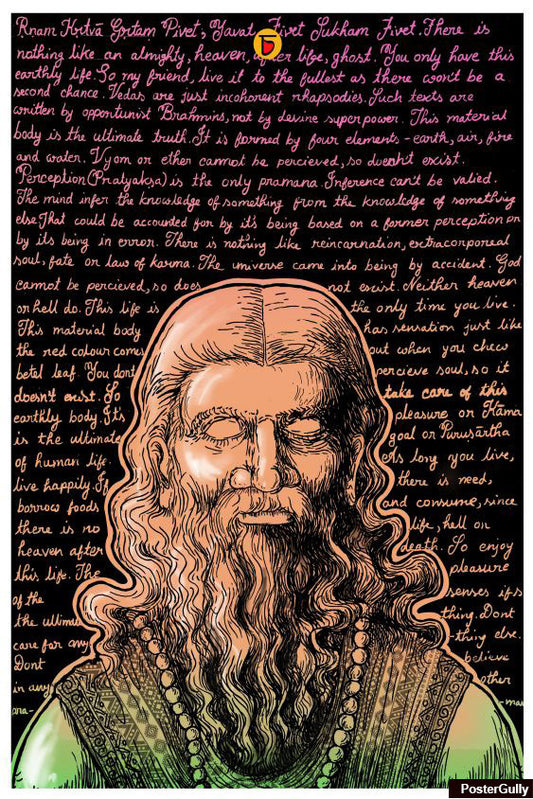 Ṛnam Kṛtvā Gṛtam Pivet, Yavat Jivet Sukham Jivet. There is
nothing like an almighty, heaven, after life, ghost. You only have this
earthly life. So my friend, live it to the fullest as there won't be a
second chance. Vedas are just incoherent rhapsodies. Such texts are
written by opportunist Brahmins, not by devine superpower. This material
body is the ultimate truth. It is formed by four elements - earth, air, fire
and water. Vyom or ether cannot be percieved, so doesn't exist.
Perception (Pratyakṣa) is the only pramana. Inference can't be valied.
The mind infer the knowledge of something from the knowledge of something
else. That could be accounted for by it's being based on a former perception or
by its being in error. There is nothing like reincarnation, extracorporeal
soul, fate or law of karma. The universe came into being by accident. God
cannot be percieved, so does not exist. Neither heaven
or hell do. This life is the only time you live.
This material body has sensation just like
the red colour comes out when you chew
betel leaf. You don't percieve soul, so it
doesn't exist. So take care of this
earthly body. Its pleasure or Kāma
is the ultimate goal or Puruṣārtha
of human life. As long you live,
live happily. If there is need,
borrow foods and consume, since
there is no life, hell or
heaven after death. So enjoy
this life. The pleasure
of the senses is
the ultimate thing. Dont
care for any -thing else.
Dont believe
in any other
para-
PosterGully